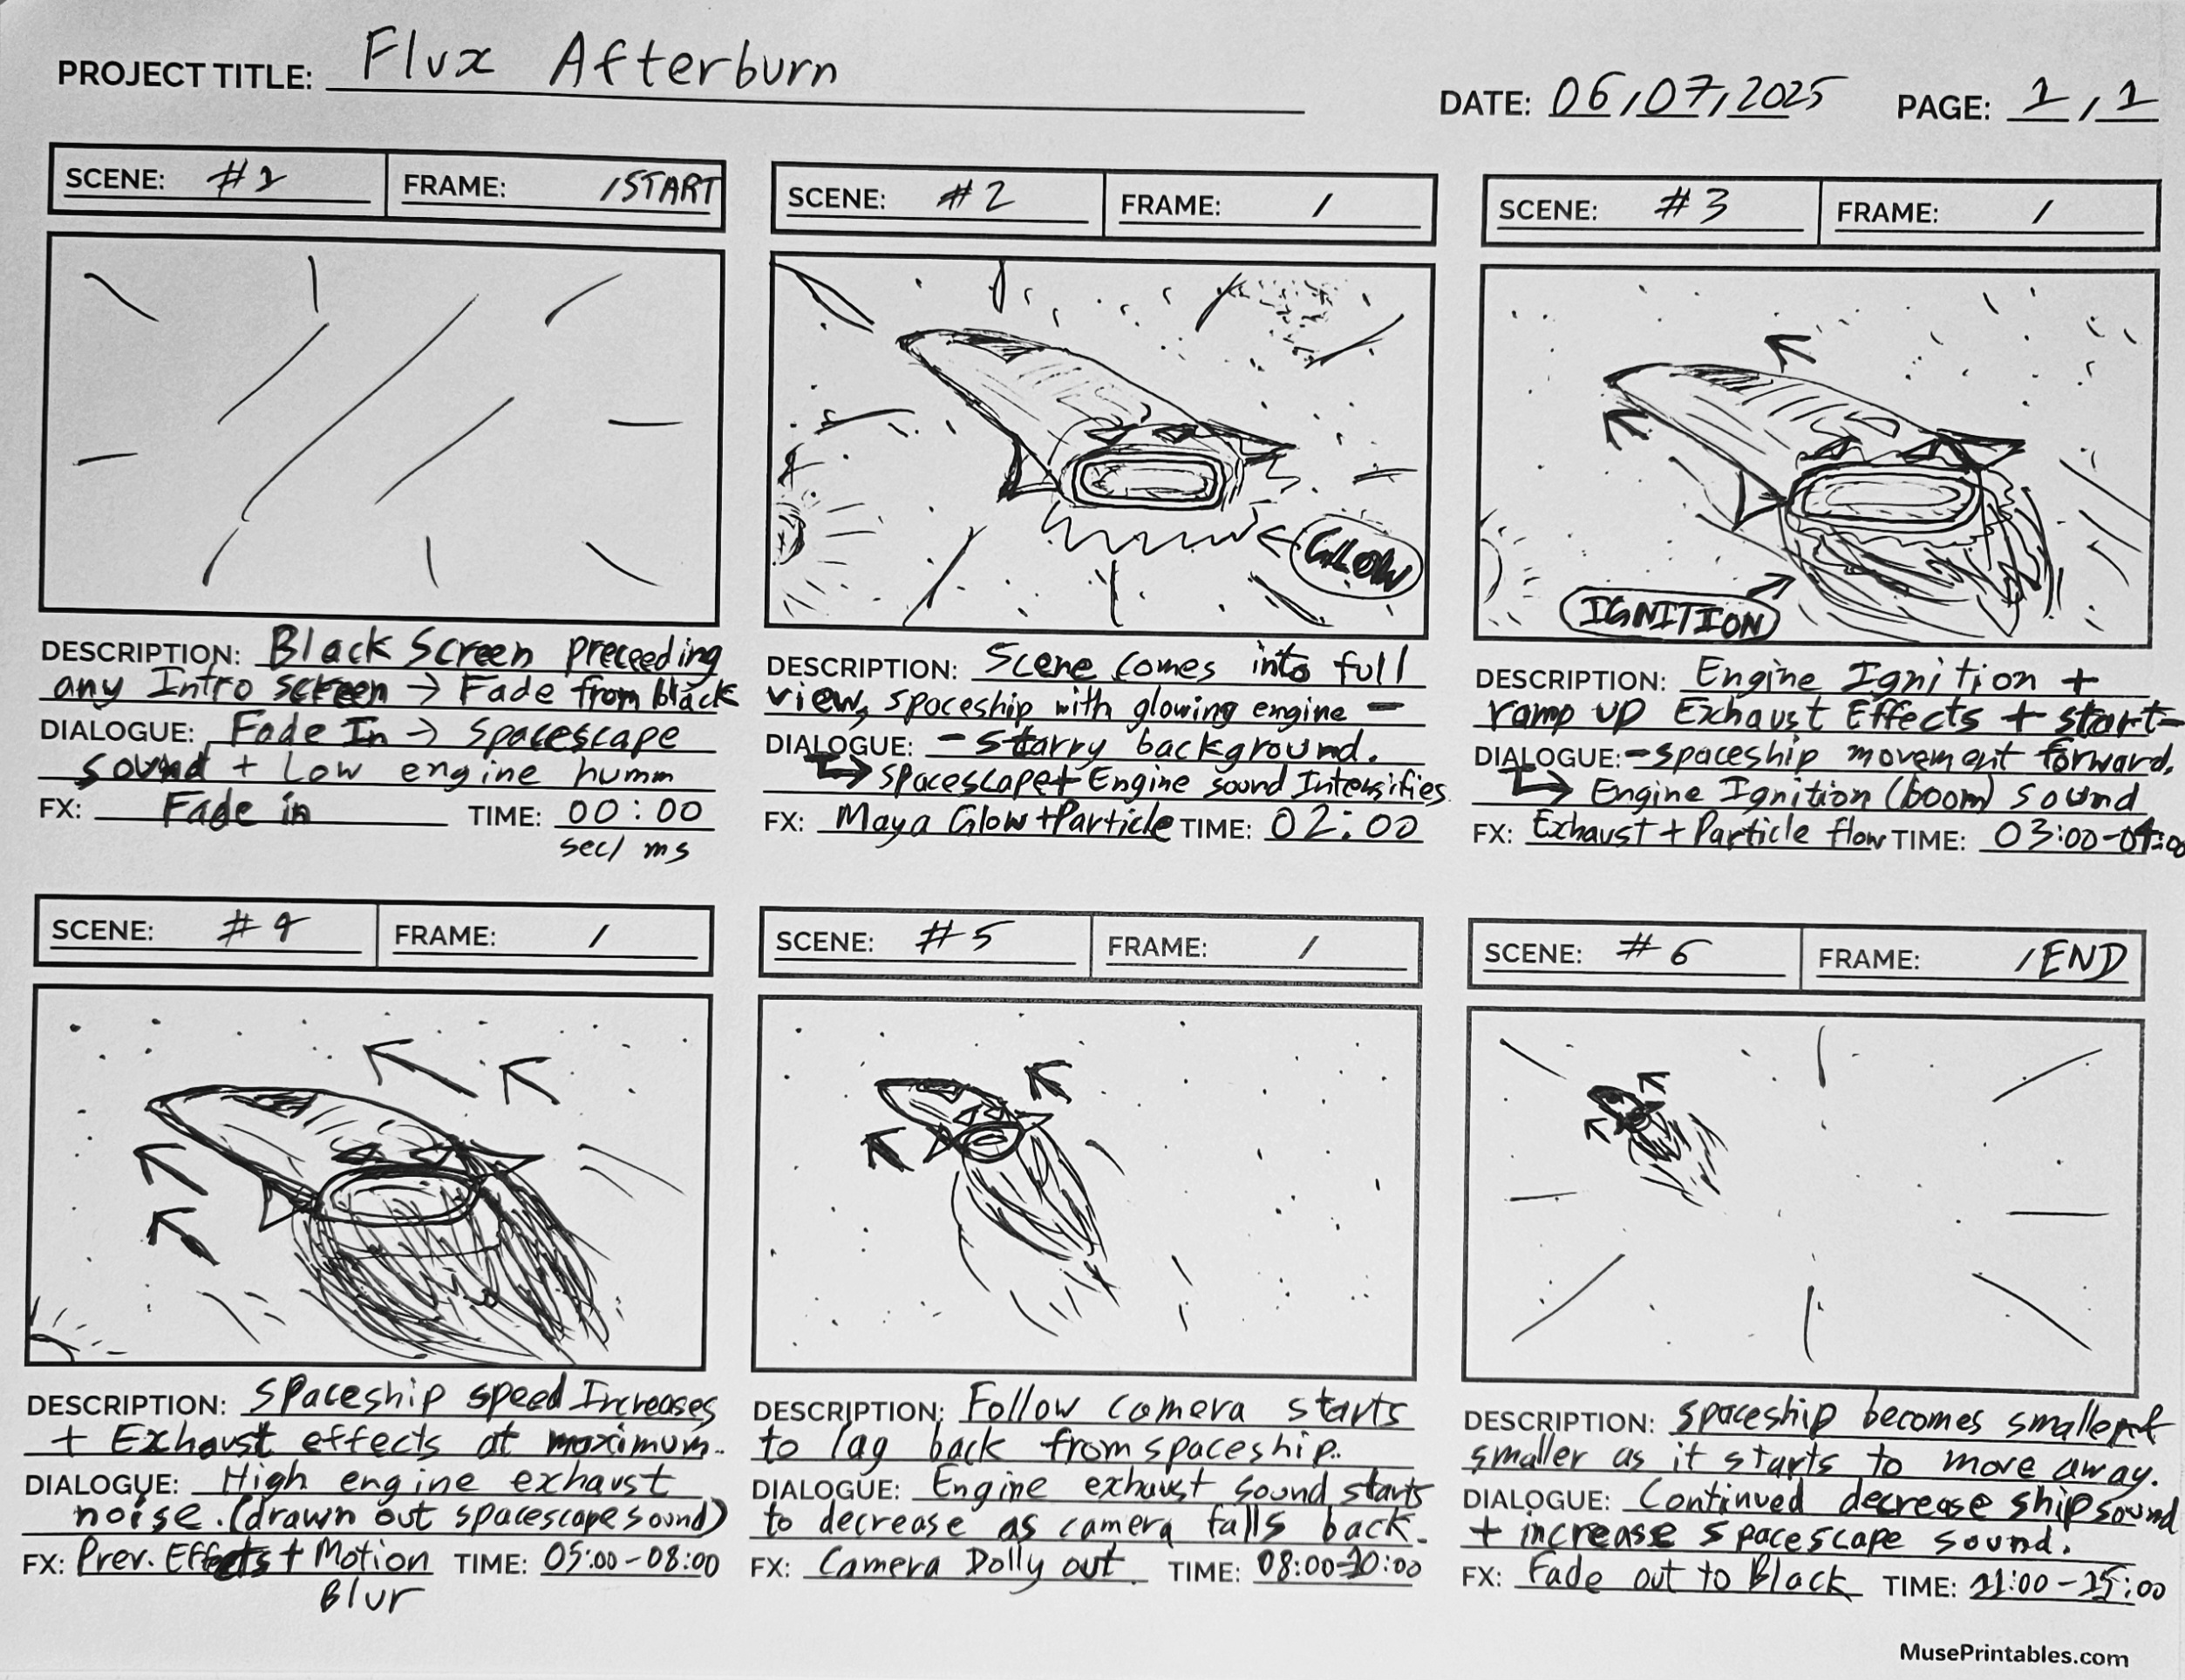 PROJECT TITLE: Flux Afterburn
DATE: 06/07/2025 PAGE: 1/1
SCENE: #1 FRAME: /START
SCENE: #2 FRAME: /
SCENE: #3 FRAME: /
GLOW
IGNITION
DESCRIPTION: Black Screen preceeding
any Intro screen → Fade from black
DIALOGUE: Fade In → Spacescape
sound + Low engine humm
FX: Fade in TIME: 00:00
sec/ ms
DESCRIPTION: Scene comes into full
view, spaceship with glowing engine -
DIALOGUE: - starry background.
→ spacescape + Engine sound Intensifies
FX: Maya Glow + Particle TIME: 02:00
DESCRIPTION: Engine Ignition +
ramp up Exhaust Effects + start-
DIALOGUE: - spaceship movement forward.
→ Engine Ignition (boom) sound
FX: Exhaust + Particle flow TIME: 03:00-04:00
SCENE: #4 FRAME: /
SCENE: #5 FRAME: /
SCENE: #6 FRAME: /END
DESCRIPTION: Spaceship speed Increases
+ Exhaust effects at maximum.
DIALOGUE: High engine exhaust
noise. (drawn out spacescape sound)
FX: Prev. Effects + Motion TIME: 05:00-08:00
Blur
DESCRIPTION: Follow camera starts
to lag back from spaceship.
DIALOGUE: Engine exhaust sound starts
to decrease as camera falls back.
FX: Camera Dolly out TIME: 08:00-10:00
DESCRIPTION: spaceship becomes smaller +
smaller as it starts to move away.
DIALOGUE: Continued decrease ship sound
+ increase spacescape sound.
FX: Fade out to Black TIME: 11:00-15:00
MusePrintables.com